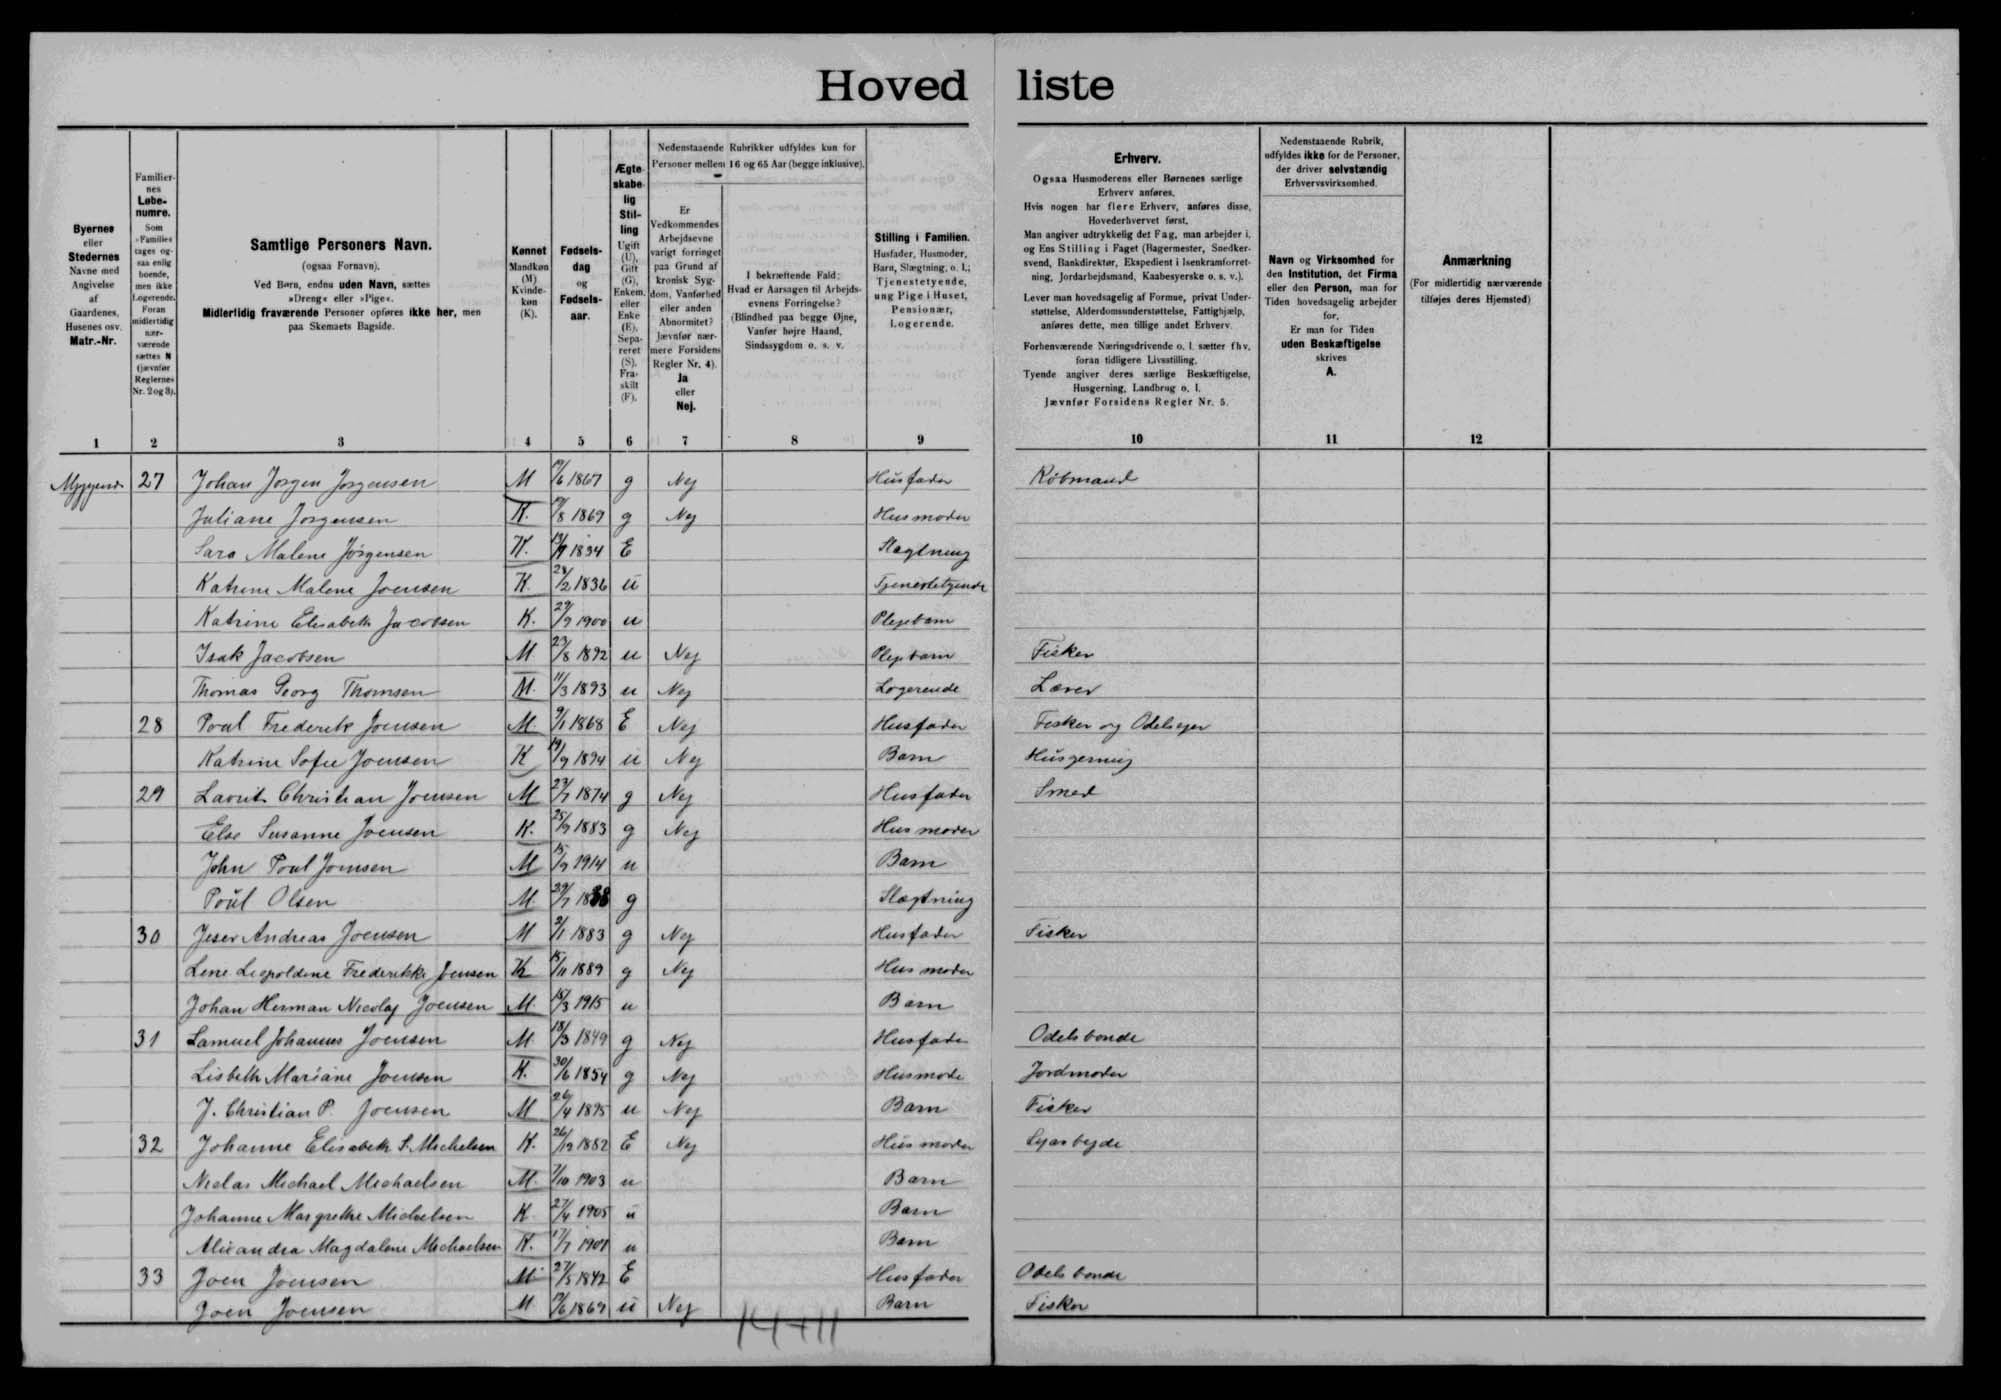 Hovedliste
Byernes
eller
Stedernes
Navne med
Angivelse
af
Gaardenes,
Husenes osv.
Matr.-Nr.
Familier-
nes
Løbe-
numre.
Som
»Familie«
tages og-
saa enlig
boende,
men ikke
Logerende.
Foran
midlertidig
nær-
værende
sættes N
(jævnfør
Reglernes
Nr. 2 og 3).
Samtlige Personers Navn.
(ogsaa Fornavn).
Ved Børn, endnu uden Navn, sættes
»Dreng« eller »Pige«.
Midlertidig fraværende Personer opføres ikke her, men
paa Skemaets Bagside.
Kønnet
Mandkøn
(M)
Kvinde-
køn
(K).
Fødsels-
dag
og
Fødsels-
aar.
Ægte-
skabe-
lig
Stil-
ling
Ugift
(U),
Gift
(G),
Enkem.
eller
Enke
(E),
Sepa-
reret
(S),
Fra-
skilt
(F).
Nedenstaaende Rubrikker udfyldes kun for
Personer mellem 16 og 65 Aar (begge inklusive).
Er
Vedkommendes
Arbejdsevne
varigt forringet
paa Grund af
kronisk Syg-
dom, Vanførhed
eller anden
Abnormitet?
Jævnfør nær-
mere Forsidens
Regler Nr. 4).
Ja
eller
Nej.
I bekræftende Fald:
Hvad er Aarsagen til Arbejds-
evnens Forringelse?
(Blindhed paa begge Øjne,
Vanfør højre Haand,
Sindssygdom o. s. v.
Stilling i Familien.
Husfader, Husmoder,
Barn, Slægtning, o. l.;
Tjenestetyende,
ung Pige i Huset,
Pensionær,
Logerende.
Erhverv.
Ogsaa Husmoderens eller Børnenes særlige
Erhverv anføres.
Hvis nogen har flere Erhverv, anføres disse,
Hovederhvervet først.
Man angiver udtrykkelig det Fag, man arbejder i,
og Ens Stilling i Faget (Bagermester, Snedker-
svend, Bankdirektør, Ekspedient i Isenkramforret-
ning, Jordarbejdsmand, Kaabesyerske o. s. v.).
Lever man hovedsagelig af Formue, privat Under-
støttelse, Alderdomsunderstøttelse, Fattighjælp,
anføres dette, men tillige andet Erhverv.
Forhenværende Næringsdrivende o. l. sætter fhv.
foran tidligere Livsstilling.
Tyende angiver deres særlige Beskæftigelse,
Husgerning, Landbrug o. l.
Jævnfør Forsidens Regler Nr. 5.
Nedenstaaende Rubrik,
udfyldes ikke for de Personer,
der driver selvstændig
Erhvervsvirksomhed.
Navn og Virksomhed for
den Institution, det Firma
eller den Person, man for
Tiden hovedsagelig arbejder
for.
Er man for Tiden
uden Beskæftigelse
skrives
A.
Anmærkning
(For midlertidig nærværende
tilføjes deres Hjemsted)
1 2 3 4 5 6 7 8 9 10 11 12
27 Johan Jørgen Jørgensen M /6 1867 g Nej Husfader Købmand
Juliane Jørgensen K. /8 1869 g Nej Husmoder
Sara Malene Jørgensen K. 1834 E Slægtning
Katrine Malene Joensen K. 28/2 1836 u Tjenestetyende
Katrine Elisabeth Jacobsen K. 29/9 1900 u Plejebarn
Isak Jacobsen M 23/8 1892 u Nej Plejebarn Fisker
Thomas Georg Thomsen M. 11/3 1893 u Nej Logerende Lærer
28 Poul Frederik Joensen M. 9/1 1868 E Nej Husfader Fisker og Odelsejer
Katrine Sofie Joensen K 19/9 1894 u Nej Barn Husgerning
29 Lavrits Christian Joensen M 27/7 1874 g Nej Husfader Smed
Else Susanne Joensen K. 25/9 1883 g Nej Husmoder
John Poul Joensen M 15/9 1914 u Barn
Poul Olsen M. 29/7 1838 g Slægtning
30 Jeser Andreas Joensen M 2/1 1883 g Nej Husfader Fisker
Lene Leopoldine Frederikke Joensen K 15/11 1889 g Nej Husmoder
Johan Herman Nicolaj Joensen M. 15/3 1915 u Barn
31 Samuel Johannes Joensen M. 18/3 1849 g Nej Husfade Odelsbonde
Lisbeth Mariane Joensen K. 30/6 1854 g Nej Husmode Jordmoder
J. Christian P. Joensen M 26/4 1895 u Nej Barn Fisker
32 Johanne Elisabeth S. Michelsen K. 26/12 1882 E Nej Husmoder Syarbejde
Niclas Michael Michaelsen M. 7/10 1903 u Barn
Johanne Margrethe Michelsen K 27/4 1905 u Barn
Alexandra Magdalene Michaelsen K. 17/7 1907 u Barn
33 Joen Joensen M. 27/5 1842 E Husfader Odelsbonde
Joen Joensen M. /6 1869 u Nej Barn Fisker
14+11